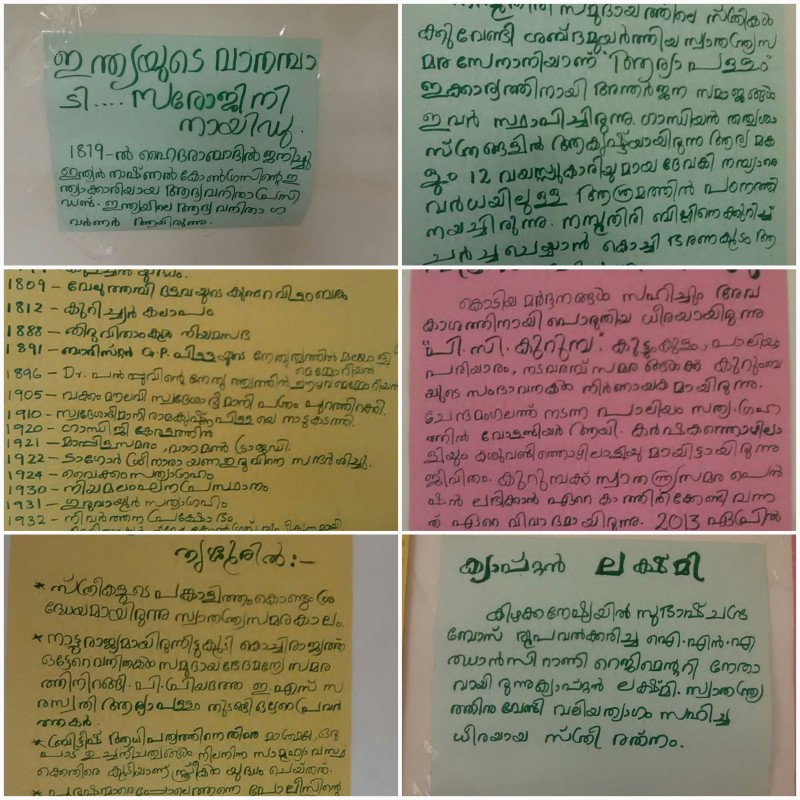 ഇന്ത്യയുടെ വാനമ്പാ
ടി.... സരോജിനി
നായിഡു.
1879-ൽ ഹൈദരാബാദിൽ ജനിച്ചു
ഇന്ത്യൻ നാഷ്ണൽ കോൺഗ്രസിന്റെ ഇ
ന്ത്യാക്കാരിയായ ആദ്യവനിതാപ്രസി
ഡണ്ട്. ഇന്ത്യയിലെ ആദ്യ വനിതാ ഗ
വർണർ ആയിരുന്നു.
സമുദായത്തിലെ സ്ത്രീകൾ
ക്കുവേണ്ടി ശബ്ദമുയർത്തിയ സ്വാതന്ത്ര്യസ
മര സേനാനിയാണ് ആര്യാ പള്ളം
ഇക്കാര്യത്തിനായി അന്തർജന സമാജങ്ങൾ
ഇവർ സ്ഥാപിച്ചിരുന്നു. ഗാന്ധിയൻ തത്വശാ
സ്ത്രങ്ങളിൽ ആകൃഷ്ടയായിരുന്ന ആര്യ മക
ളും 12 വയസ്സുകാരിയുമായ ദേവകി
വർധയിലുള്ള ആശ്രമത്തിൽ പഠനത്തി
നയച്ചിരുന്നു. നമ്പൂതിരി ബില്ലിനെക്കുറിച്ച്
ചർച്ച ചെയ്യാൻ കൊച്ചി ഭരണകൂടം ആ
1809 – വേലുത്തമ്പി ദളവയുടെ കുണ്ടറ വിളംബരം
1812 – കുറിച്ച്യർ കലാപം
1888 – തിരുവിതാംകൂർ നിയമസഭ
1891 – ബാരിസ്റ്റർ G.P. പിള്ളയുടെ നേതൃത്വത്തിൽ മലയാളി
മെമ്മോറിയൽ
1896 – Dr. പൽപ്പുവിന്റെ നേതൃത്വത്തിൽ ഈഴവമെമ്മോറിയൽ
1905 – വക്കം മൗലവി സ്വദേശാഭിമാനി പത്രം പുറത്തിറക്കി.
1910 – സ്വദേശാഭിമാനി രാമകൃഷ്ണപിള്ളയെ നാടുകടത്തി.
1920 – ഗാന്ധിജി കേരളത്തിൽ
1921 – മാപ്പിളസമരം, വാഗൺ ട്രാജഡി.
1922 – ടാഗോർ ശ്രീനാരായണഗുരുവിനെ സന്ദർശിച്ചു.
1924 – വൈക്കം സത്യാഗ്രഹം
1930 – നിയമലംഘനപ്രസ്ഥാനം
1931 – ഗുരുവായൂർ സത്യാഗ്രഹം
1932 – നിവർത്തനപ്രക്ഷോഭം.
കൊടിയ മർദ്ദനങ്ങൾ സഹിച്ചും അവ
കാശത്തിനായി പൊരുതിയ ധീരയായിരുന്നു
പി.സി. കുറുമ്പ. കുട്ടംകുളം, പാലിയം
പരിയാരം, നടവരമ്പ് സമരങ്ങൾക്ക് കുറുംബ
യുടെ സംഭാവനകൾ നിർണായകമായിരുന്നു.
ചേന്ദമംഗലത്ത് നടന്ന പാലിയം സത്യഗ്രഹ
ത്തിൽ വോളണ്ടിയർ ആയി. കർഷകത്തൊഴിലാ
ളിയും കശുവണ്ടിത്തൊഴിലാളിയുമായിട്ടായിരുന്നു
ജീവിതം. കുറുമ്പക്ക് സ്വാതന്ത്ര്യസമര പെൻ
ഷൻ ലഭിക്കാൻ ഏറെ കാത്തിരിക്കേണ്ടി വന്ന
ത് ഏറെ വിവാദമായിരുന്നു. 2013 ഏപ്രിൽ
തൃശ്ശൂരിൽ :–
* സ്ത്രീകളുടെ പങ്കാളിത്തംകൊണ്ടും ശ്ര
ദ്ധേയമായിരുന്നു സ്വാതന്ത്ര്യസമരകാലം.
* നാട്ടുരാജ്യമായിരുന്നിട്ടുകൂടി കൊച്ചിരാജ്യത്ത്
ഒട്ടേറെ വനിതകൾ സമുദായഭേദമന്യേ സമര
ത്തിനിറങ്ങി. പി. പ്രിയദത്ത ഇ.എസ് സ
രസ്വതി ആര്യാപള്ളം തുടങ്ങി ഒട്ടേറെപ്രവർ
ത്തകർ.
* ബ്രിട്ടീഷ് ആധിപത്യത്തിനെതിരെ മാത്രമല്ല, ഒരു
പാട് ഉച്ചനീചത്വങ്ങൾ നിലനിന്ന സാമൂഹ്യവസ്ഥ
ക്കെതിരെ കൂടിയാണ് സ്ത്രീകൾ യുദ്ധം ചെയ്തത്.
* പുരുഷന്മാരെപ്പോലെത്തന്നെ പോലീസിന്റെ
ക്യാപ്റ്റൻ ലക്ഷ്മി
കിഴക്കനേഷ്യയിൽ സുഭാഷ് ചന്ദ്ര
ബോസ് രൂപവൽക്കരിച്ച ഐ.എൻ.എ
ഝാൻസി റാണി റെജിമെന്റി നേതാ
വായിരുന്നു ക്യാപ്റ്റൻ ലക്ഷ്മി. സ്വാതന്ത്ര്യ
ത്തിനുവേണ്ടി വലിയത്യാഗം സഹിച്ച
ധീരയായ സ്ത്രീ രത്നം.